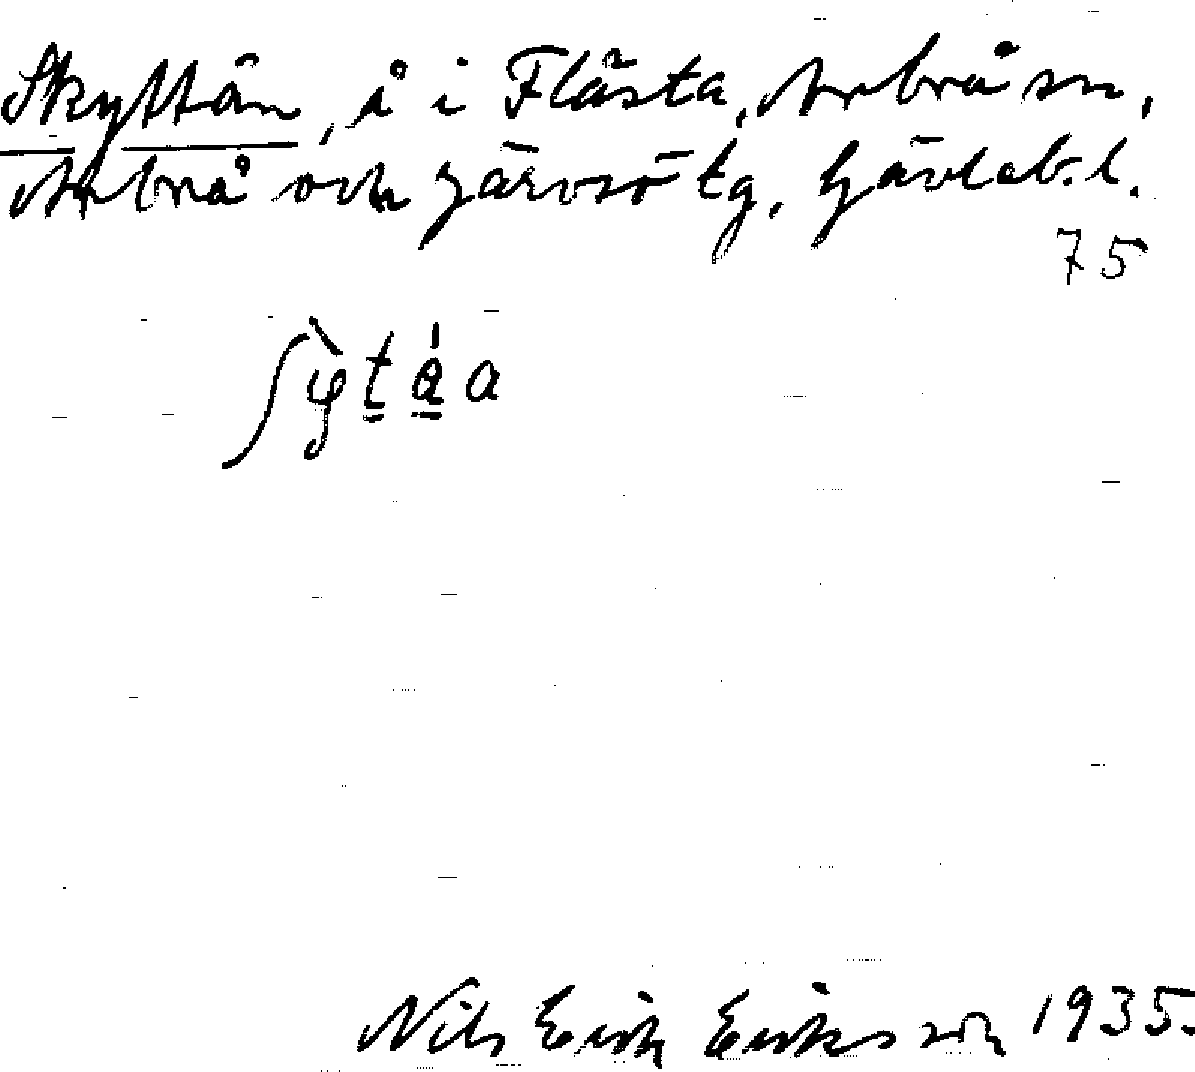 Skyttån, å i Flästa, Arbrå sn,
Arbrå och Järvsö tg, Gävleb. l.
75
Nils Erik Eriksson 1935.